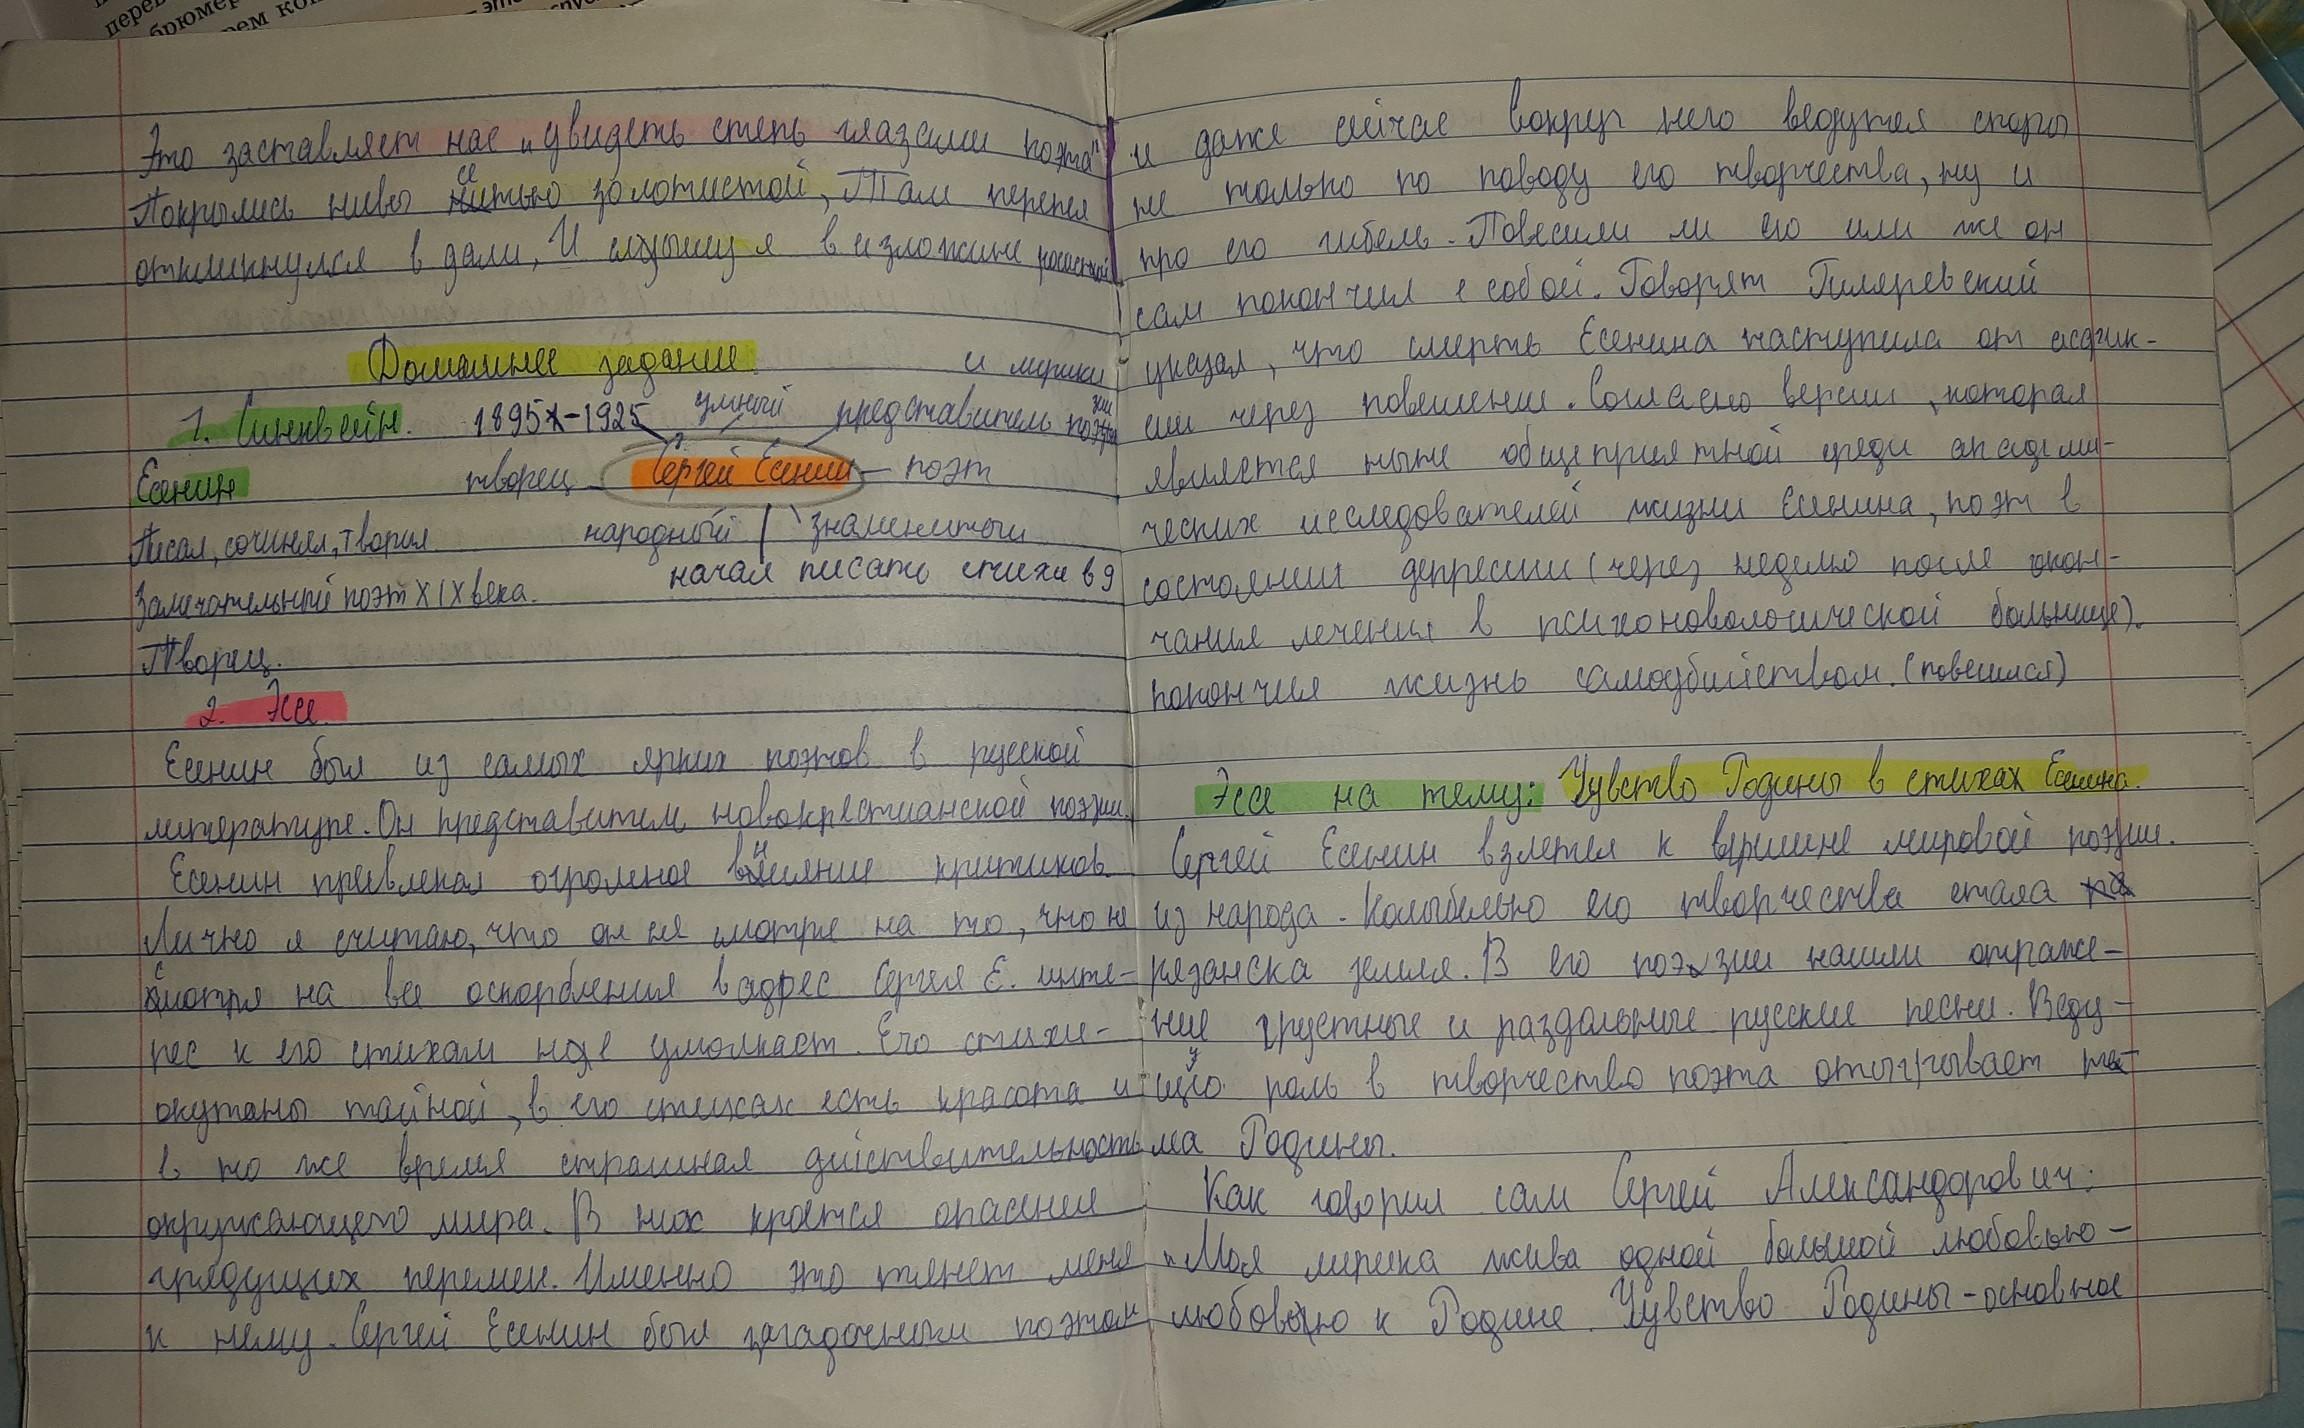 перев
брюмер
рем кон
это
Это заставляет нас „увидеть степь глазами поэта"
Покрылись нивы сетью золотистой, Там перепел
откликнулся в дали, И слышу я в изложине росистой
Домашнее задание:
1. Синквейн.
Есенин
Писал, сочинял, творил
Замечательный поэт XIX века.
Творец.
и лирики
1895-1925 умный представитель поэзии
творец Сергей Есенин поэт
народный знаменитый
начал писать стихи в 9
2. Эссе.
Есенин был из самых ярких поэтов в русской
литературе. Он представитель новокрестианской поэзии.
Есенин превлекал огромное внимание критиков.
Лично я считаю, что он не смотря на то, что не
смотря на все оскорбления в адрес Сергея Е. инте-
рес к его стихам не умолкает. Его стихи-
окутаны тайной, в его стихах есть красота и
в то же время страшная действительность
окружающего мира. В них кроется опасения
грядущих перемен. Именно это тянет меня
к нему. Сергей Есенин был загадочным поэтом
и даже сейчас вокруг него ведутся споры
не только по поводу его творчества, ну и
про его гибель. Повесили ли его или же он
сам покончил с собой. Говорят Гиляревский
указал, что смерть Есенина наступила от асфик-
сии через повешение. Согласно версии, которая
является ныне общепринятной среди академи-
ческих исследователей жизни Есенина, поэт в
состоянии депрессии (через неделю после окон-
чания лечения в психоновологической больнице).
покончил жизнь самоубийством. (повешился)
Эссе на тему: Чувство Родины в стихах Есенина.
Сергей Есенин взлетел к вершине мировой поэзии.
из народа. Колыбелью его творчества стала
рязанска земля. В его поэзии нашли отраже-
ние грустные и раздольные русские песни. Веду-
щую роль в творчество поэта отыгрывает те-
ма Родины.
Как говорил сам Сергей Александорович:
„Моя лирика жива одной большой любовью-
любовью к Родине. Чувство Родины-основное